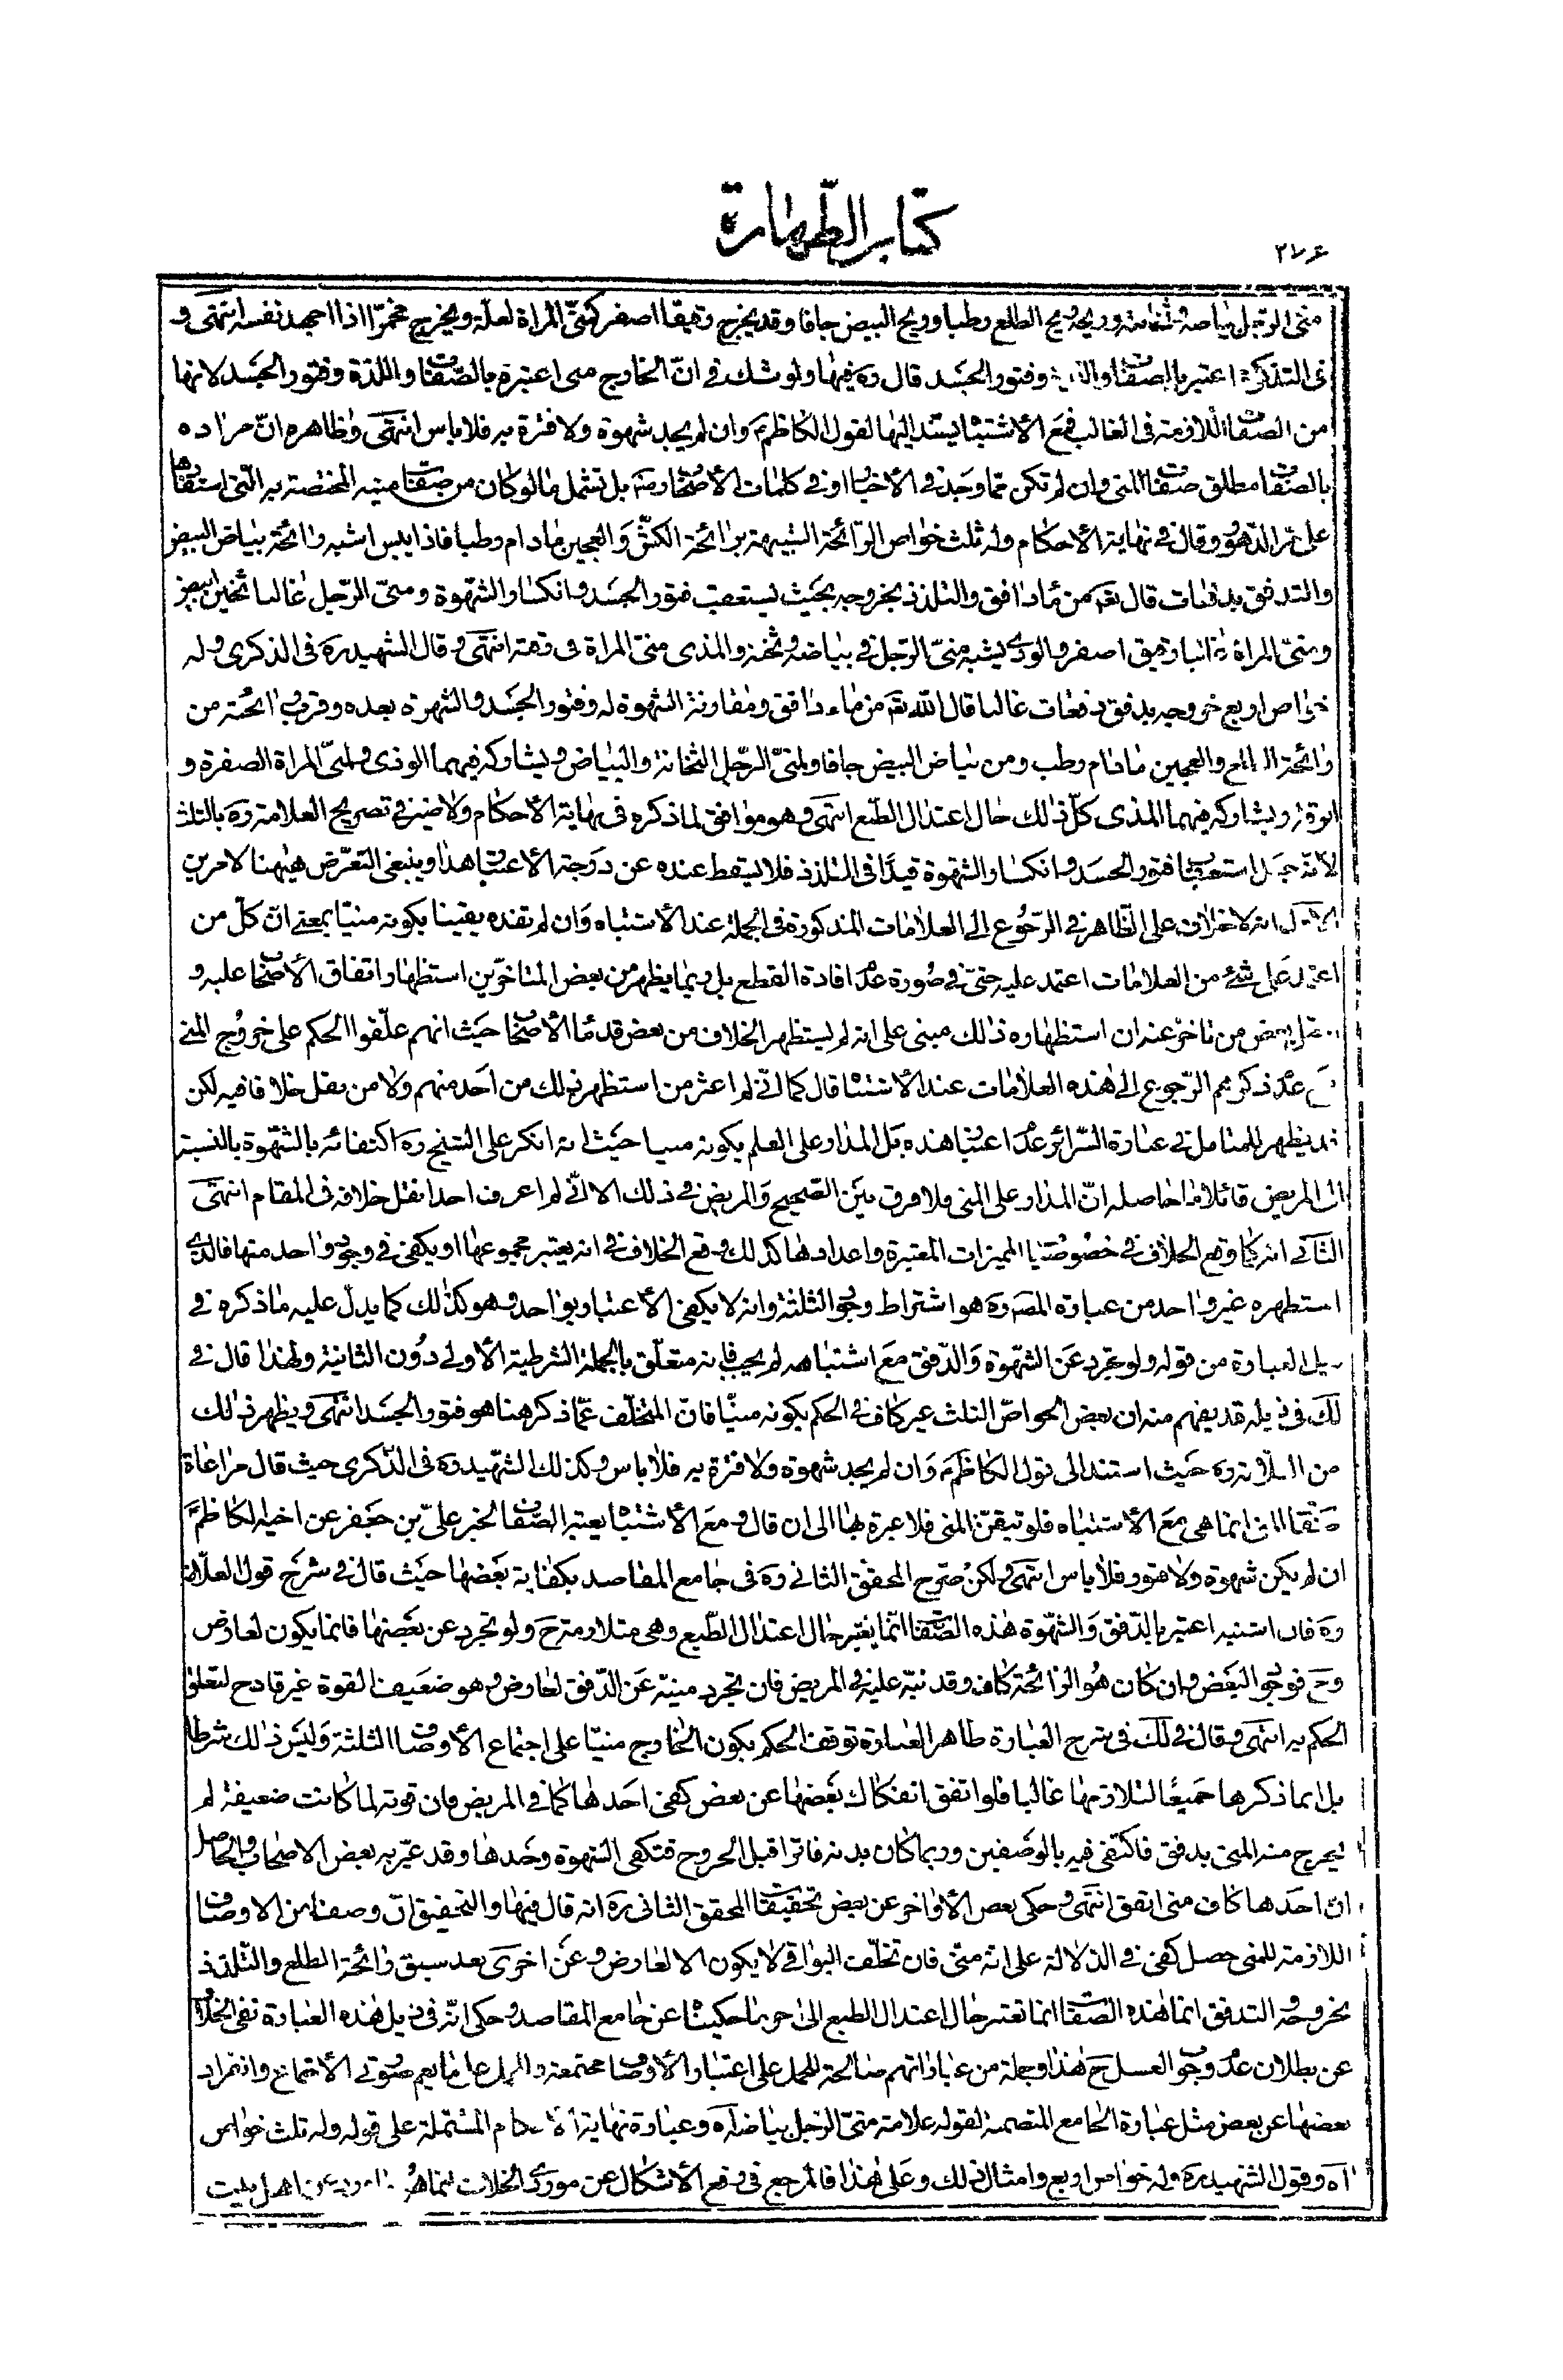 كتاب الطّهارة
٢٧۶
منىّ الرّجل بياضه وثخانته وريحه ريح الطلع رطبا وريح البيض جافا وقد يخرج رقيقا اصفر كمنىّ المراة لعلّة ويخرج محمرّا اذا اجهد نفسه انتهى و
فى التذكرة اعتبر بالصّفات و وفتور الجسد قال ره فيها ولو شك فى انّ الخارج منى اعتبره بالصّفات واللذة وفتور الجسد لانها
من الصفات اللازمة فى الغالب فمع الأشتباه يستند اليها لقول الكاظم ع وان لم يجد شهوة ولا فترة به فلا باس انتهى وظاهره انّ مراده
بالصفات مطلق صفات المنى وان لم تكن مما وجد فى الأخبار او فى كلمات الأصحاب رضه بل تشمل ما لو كان من صفات منيه المختصة به الّتى استفادها
على مرّ الدّهور وقال فى نهاية الأحكام وله ثلث خواص الرّائحة الشبيهة برائحة الكشّ والعجين ما دام رطبا فاذا يبس اشبه رائحة بياض البيض
والتدفق بدفعات قال تعم من ماء دافق والتلذذ بخروجه بحيث يستعقب فتور الجسد وانكسار الشهوة ومنىّ الرّجل غالبا ثخين ابيض
ومنىّ المراة غالبا رقيق اصفر والودى يشبه منىّ الرّجل فى بياضه وثخنه والمذى منىّ المراة فى رقته انتهى وقال الشهيد ره فى الذكرى وله
خواص اربع خروجه بدفق دفعات غالبا قال اللّه تعم من ماء دافق ومقارنة الشهوة له وفتور الجسد والشهوة بعده وقرب رائحته من
رائحة الطلع والعجين ما دام رطب ومن بياض البيض جافا ولمنىّ الرّجل الثخانة والبياض ويشاركه فيهما الوذى ولمنىّ المراة الصفرة و
الرقة ويشاركه فيهما المذى كلّ ذلك حال اعتدال الطّبع انتهى وهو موافق لما ذكره فى نهاية الأحكام ولا ضير فى تصريح العلامة ره بالثلث
لأنّه جعل استعقاب فتور الجسد وانكسار الشهوة قيدا فى التلذذ فلا يسقط عنده عن درجة الأعتبار هذا وينبغى التعرّض هيهنا لامرين
الاوّل انه لا خلاف على الظّاهر فى الرّجوع الى العلامات المذكورة فى الجملة عند الأشتباه وان لم تفده يقينا بكونه منيّا بمعنى انّ كلّ من
اعتمد على شئ من العلامات اعتمد عليه حتىّ فى صورة عدم افادة القطع بل ربما يظهر من بعض المتاخّرين استظهار اتفاق الأصحاب عليه و
نقل بعض من تاخّر عنه ان استظهاره ذلك مبنى على انه لم يستظهر الخلاف من بعض قدماء الأصحاب حيث انهم علّقوا الحكم على خروج المنى
مع عدم ذكرهم الرّجوع الى هذه العلامات عند الأشتباه قال كما انّى لم اعثر من استظهر ذلك من احد منهم ولا من نقل خلافا فيه لكن
قد يظهر للمتامل فى عبارة السّرائر عدم اعتبار هذه بل المدار على العلم بكونه منيا حيث انه انكر على الشيخ ره اكتفائه بالشّهوة بالنسبة
الى المريض قائلا ما حاصله انّ المدار على المنى فلا فرق بين الصّحيح والمريض فى ذلك الا انّى لم اعرف احدا نقل خلافه فى المقام انتهى
الثّانى انه كما وقع الخلاف فى خصوصيات المميزات المعتبرة واعدادها كذلك وقع الخلاف فى انه يعتبر مجموعها او يكفى فى وجود واحد منها فالذى
استظهره غير واحد من عبارة المصنف ره هو اشتراط وجود الثلثة وانه لا يكفى الأعتبار بواحد وهو كذلك كما يدلّ عليه ما ذكره فى
ذيل العبارة من قوله ولو تجرد عن الشّهوة والدّفق مع اشتباهه لم يجب فانه متعلّق بالجملة الشرطية الأولى دون الثانية ولهذا قال فى
لك فى ذيله قد يفهم منه ان بعض الخواصّ الثلث غير كاف فى الحكم بكونه منيّا فانّ المتخلّف عمّا ذكر هنا هو فتور الجسد انتهى ويظهر ذلك
من العلّامة ره حيث استند الى قول الكاظم ع وان لم يجد شهوة ولا فترة به فلا باس وكذلك الشّهيد ره فى الذّكرى حيث قال مراعاة
صفات المنى انما هى مع الأشتباه فلو تيقنّ المنى فلا عبرة بها الى ان قال ومع الأشتباه يعتبر الصّفات لخبر علىّ بن جعفر عن اخيه الكاظم ع
ان لم يكن شهوة ولا فتور فلا باس انتهى ولكن صرّح المحقق الثانى ره فى جامع المقاصد بكفاية بعضها حيث قال فى شرح قول العلّامة
ره فان اشتبه اعتبر بالدّفق والشّهوة هذه الصّفات انّما يعتبر حال اعتدال الطّبع وهى متلازمة ح ولو تجرد عن بعضها فانما يكون لعارض
وح فوجود البعض وان كان هو الرّائحة كاف وقد نبّه عليه فى المريض فان تجرد منيّه عن الدّفق لعارض وهو ضعيف القوة غير قادح لتعلق
الحكم به انتهى وقال فى لك فى شرح العبارة ظاهر العبارة توقف الحكم بكون الخارج منيّا على اجتماع الأوصاف الثلثة وليس ذلك شرطا
بل انما ذكرها جميعًا لتلازمها غالبا فلو اتفق انفكاك بعضها عن بعض كفى احدها كما فى المريض فان قوته لما كانت ضعيفة لم
يخرج منه المنى بدفق فاكتفى فيه بالوصفين وربما كان بدنه فاترا قبل الخروج فتكفى الشهوة وحدها وقد عبّر به بعض الاصحاب والحاصل
انّ احدها كاف متى اتفق انتهى وحكى بعض الأواخر عن بعض تحقيقات المحقق الثانى ره انه قال فيها والتحقيق انّ وصفا من الاوصاف
اللازمة للمنى حصل كفى فى الدلالة على انّه منىّ فان تخلّف البواقى لا يكون الا لعارض وعن اخرى بعد سبق رائحة الطلع والتّلذذ
بخروجه التدفق انما هذه الصّفات انما تعتبر حال اعتدال الطبع الى اخر ما حكيناه عن جامع المقاصد وحكى انّه فى ذيل هذه العبارة نفى الخلاف
عن بطلان عدم وجوب الغسل ح هذا وجملة من عباراتهم صالحة للحمل على اعتبار الأوصاف مجتمعة والحمل على ما يعم صورتى الأجتماع وانفراد
بعضها عن بعض مثل عبارة الجامع المتضمنة لقوله علامة منىّ الرّجل بياضه آه وعبارة نهاية الأحكام المشتملة على قوله وله ثلث خواص
آه وقول الشهيد ره وله خواص اربع وامثال ذلك وعلى هذا فالمرجع فى رفع الأشكال عن موردى الخلاف انما هو اهل بيت